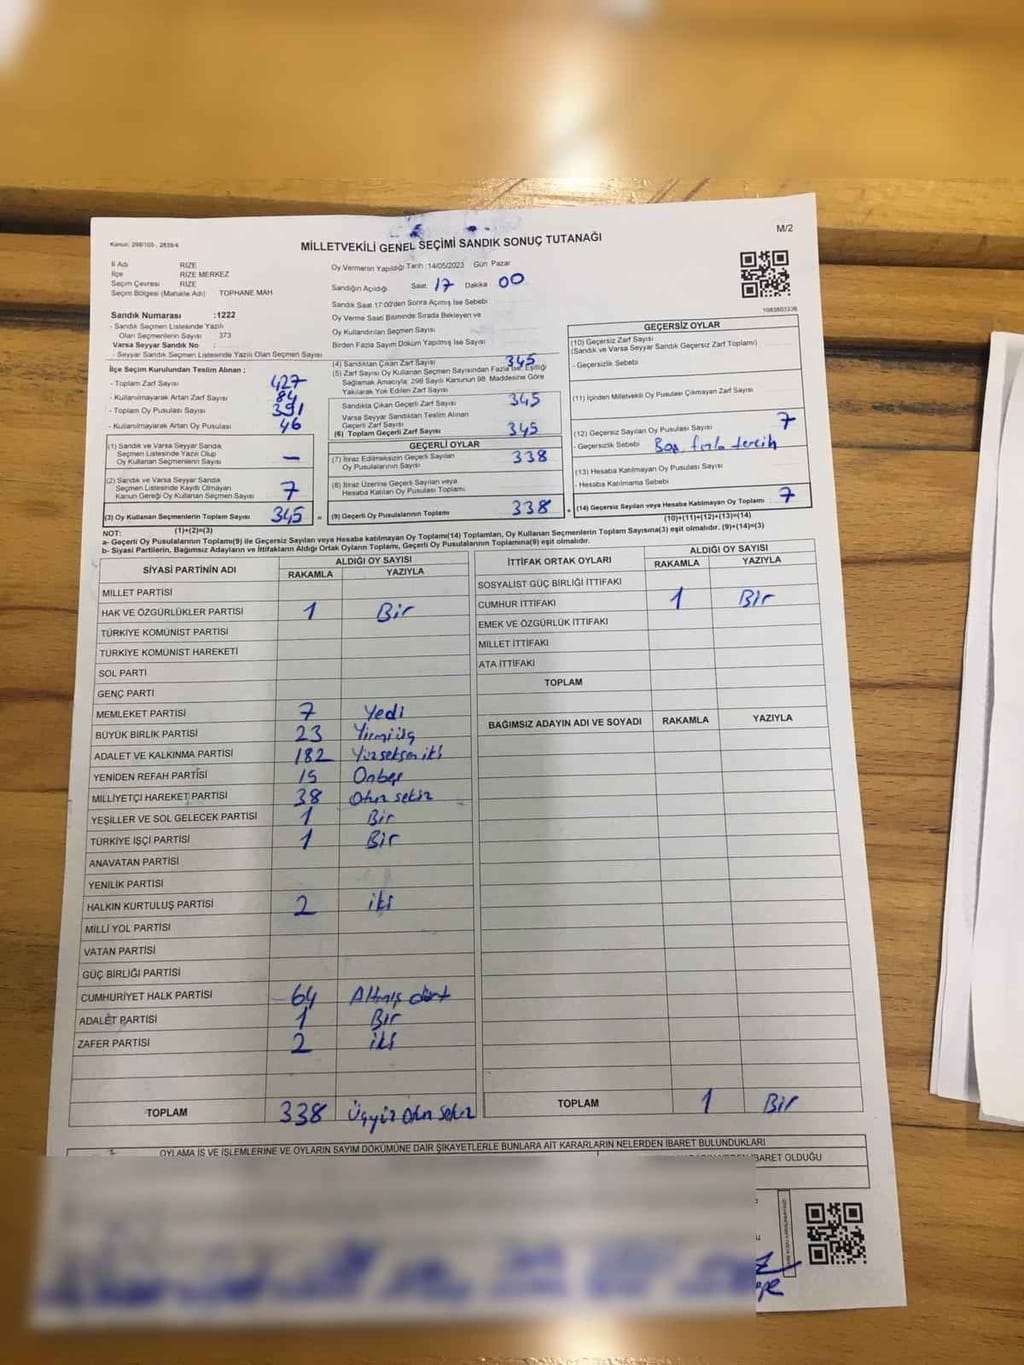 Kanun: 298/105 , 2839/4
MİLLETVEKİLİ GENEL SEÇİMİ SANDIK SONUÇ TUTANAĞI
M/2
İl Adı RİZE
İlçe RİZE MERKEZ
Seçim Çevresi RİZE
Seçim Bölgesi (Mahalle Adı) TOPHANE MAH
Sandık Numarası :1222
- Sandık Seçmen Listesinde Yazılı
Olan Seçmenlerin Sayısı 373
Varsa Seyyar Sandık No :
- Seyyar Sandık Seçmen Listesinde Yazılı Olan Seçmen Sayısı
Oy Vermenin Yapıldığı Tarih :14/05/2023 Gün Pazar
Sandığın Açıldığı Saat 17 Dakika 00
Sandık Saat 17:00'den Sonra Açılmış İse Sebebi
Oy Verme Saati Bitiminde Sırada Bekleyen ve
Oy Kullandırılan Seçmen Sayısı
Birden Fazla Sayım Döküm Yapılmış İse Sayısı
1083803336
İlçe Seçim Kurulundan Teslim Alınan ;
- Toplam Zarf Sayısı 427
- Kullanılmayarak Artan Zarf Sayısı 84
- Toplam Oy Pusulası Sayısı 391
- Kullanılmayarak Artan Oy Pusulası 46
(1) Sandık ve Varsa Seyyar Sandık
Seçmen Listesinde Yazılı Olup
Oy Kullanan Seçmenlerin Sayısı —
(2) Sandık ve Varsa Seyyar Sandık
Seçmen Listesinde Kayıtlı Olmayan
Kanun Gereği Oy Kullanan Seçmen Sayısı 7
(3) Oy Kullanan Seçmenlerin Toplam Sayısı 345
(1)+(2)=(3)
(4) Sandıktan Çıkan Zarf Sayısı 345
(5) Zarf Sayısı Oy Kullanan Seçmen Sayısından Fazla İse, Eşitliği
Sağlamak Amacıyla; 298 Sayılı Kanunun 98. Maddesine Göre
Yakılarak Yok Edilen Zarf Sayısı
Sandıkta Çıkan Geçerli Zarf Sayısı 345
Varsa Seyyar Sandıktan Teslim Alınan
Geçerli Zarf Sayısı
(6) Toplam Geçerli Zarf Sayısı 345
GEÇERLİ OYLAR
(7) İtiraz Edilmeksizin Geçerli Sayılan
Oy Pusulalarının Sayısı 338
(8) İtiraz Üzerine Geçerli Sayılan veya
Hesaba Katılan Oy Pusulası Toplamı
= (9) Geçerli Oy Pusulalarının Toplamı 338
GEÇERSİZ OYLAR
(10) Geçersiz Zarf Sayısı
(Sandık ve Varsa Seyyar Sandık Geçersiz Zarf Toplamı)
- Geçersizlik Sebebi
(11) İçinden Milletvekili Oy Pusulası Çıkmayan Zarf Sayısı
(12) Geçersiz Sayılan Oy Pusulası Sayısı 7
- Geçersizlik Sebebi Boş, fazla tercih
(13) Hesaba Katılmayan Oy Pusulası Sayısı
- Hesaba Katılmama Sebebi
+ (14) Geçersiz Sayılan veya Hesaba Katılmayan Oy Toplamı 7
(10)+(11)+(12)+(13)=(14)
NOT:
a- Geçerli Oy Pusulalarının Toplamı(9) ile Geçersiz Sayılan veya Hesaba katılmayan Oy Toplamı(14) Toplamları, Oy Kullanan Seçmenlerin Toplam Sayısına(3) eşit olmalıdır. (9)+(14)=(3)
b- Siyasi Partilerin, Bağımsız Adayların ve İttifakların Aldığı Ortak Oyların Toplamı, Geçerli Oy Pusulalarının Toplamına(9) eşit olmalıdır.
SİYASİ PARTİNİN ADI ALDIĞI OY SAYISI
RAKAMLA YAZIYLA
MİLLET PARTİSİ
HAK VE ÖZGÜRLÜKLER PARTİSİ 1 Bir
TÜRKİYE KOMÜNİST PARTİSİ
TÜRKİYE KOMÜNİST HAREKETİ
SOL PARTİ
GENÇ PARTİ
MEMLEKET PARTİSİ 7 Yedi
BÜYÜK BİRLİK PARTİSİ 23 Yirmi üç
ADALET VE KALKINMA PARTİSİ 182 Yüzseksen iki
YENİDEN REFAH PARTİSİ 15 Onbeş
MİLLİYETÇİ HAREKET PARTİSİ 38 Otuz sekiz
YEŞİLLER VE SOL GELECEK PARTİSİ 1 Bir
TÜRKİYE İŞÇİ PARTİSİ 1 Bir
ANAVATAN PARTİSİ
YENİLİK PARTİSİ
HALKIN KURTULUŞ PARTİSİ 2 iki
MİLLİ YOL PARTİSİ
VATAN PARTİSİ
GÜÇ BİRLİĞİ PARTİSİ
CUMHURİYET HALK PARTİSİ 64 Altmış dört
ADALET PARTİSİ 1 Bir
ZAFER PARTİSİ 2 iki
TOPLAM 338 Üçyüz Otuz sekiz
İTTİFAK ORTAK OYLARI ALDIĞI OY SAYISI
RAKAMLA YAZIYLA
SOSYALİST GÜÇ BİRLİĞİ İTTİFAKI
CUMHUR İTTİFAKI 1 Bir
EMEK VE ÖZGÜRLÜK İTTİFAKI
MİLLET İTTİFAKI
ATA İTTİFAKI
TOPLAM
BAĞIMSIZ ADAYIN ADI VE SOYADI RAKAMLA YAZIYLA
TOPLAM 1 Bir
OYLAMA İŞ VE İŞLEMLERİNE VE OYLARIN SAYIM DÖKÜMÜNE DAİR ŞİKAYETLERLE BUNLARA AİT KARARLARIN NELERDEN İBARET BULUNDUKLARI
İBARET OLDUĞU